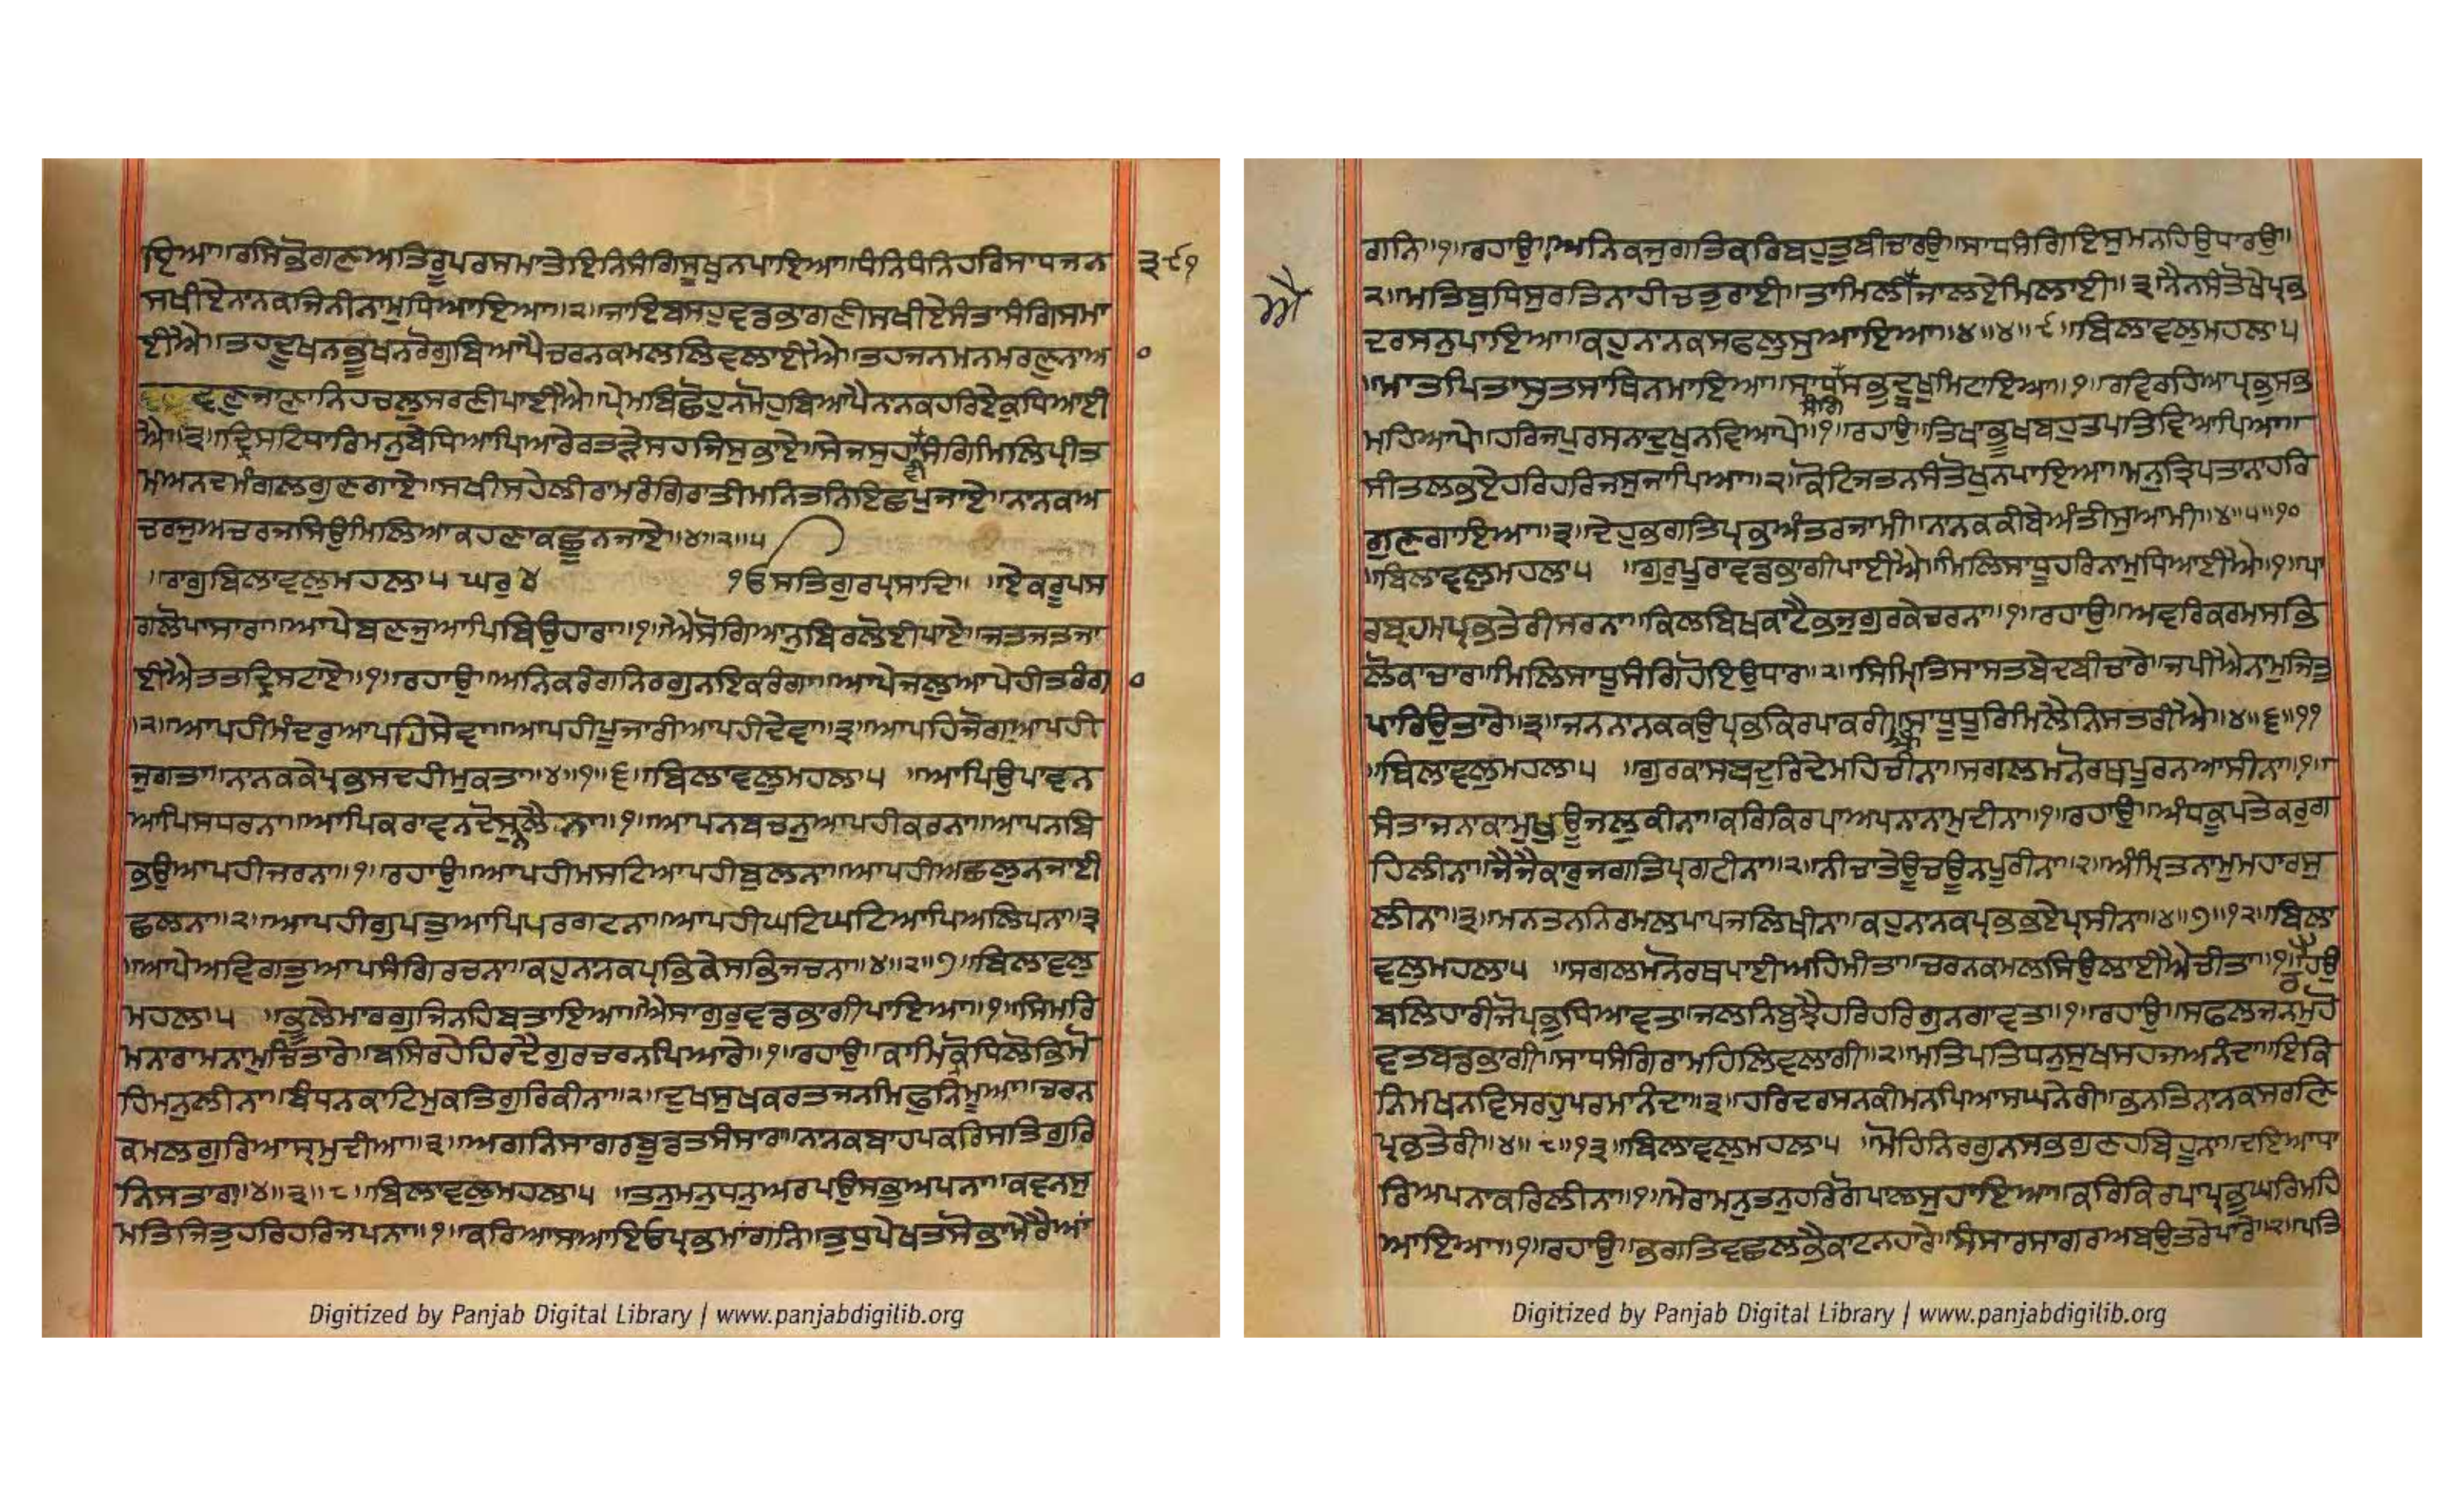 ਇਆ॥ਰਸਿਕੋਗਣਅਤਿਰੂਪਰਸਮਾਤੇਇਨਿਸੰਗਿਸੁਖੁਨਪਾਇਆ॥ਧੰਨਿਧੰਨਿਹਰਿਸਾਧਜਨ
੩੯੧
ਸਖੀਏਨਾਨਕਜਿਨੀਨਾਮੁਧਿਆਇਆ॥੨॥ਜਾਇਬਸਹੁਵਡਭਾਗਣੀਸਖੀਏਸੰਤਾਸੰਗਿਸਮਾ
ਈਐ॥ਤਹਦੂਖਨਭੂਖਨਰੋਗੁਬਿਆਪੈਚਰਨਕਮਲਲਿਵਲਾਈਐ॥ਤਹਜਨਮਨਮਰਣੁਨਾਅ
੦
ਵਣਜਾਣਾਨਿਹਚਲੁਸਰਣੀਪਾਈਐ॥ਪ੍ਰੇਮਬਿਛੋਹੁਨਮੋਹੁਬਿਆਪੈਨਾਨਕਹਰਿਏਕੁਧਿਆਈ
ਐ॥੩॥ਦ੍ਰਿਸਟਿਧਾਰਿਮਨੁਬੇਧਿਆਪਿਆਰੇਰਤੜੇਸਹਜਿਸੁਭਾਏ॥ਸੇਜਸੁਹਾਸੰਗਿਮਿਲਿਪ੍ਰੀਤ
ਵੀ
ਮਅਨਦਮੰਗਲਗੁਣਗਾਏ॥ਸਖੀਸਹੇਲੀਰਾਮਰੰਗਿਰਾਤੀਮਨਿਤਨਿਇਛਪੁਜਾਏ॥ਨਾਨਕਅ
ਚਰਜੁਅਚਰਜਸਿਉਮਿਲਿਆਕਹਣਾਕਛੂਨਜਾਏ॥੪॥੨॥੫
॥ਰਾਗੁਬਿਲਾਵਲੁਮਹਲਾ੫ ਘਰੁ੪ ੴਸਤਿਗੁਰਪ੍ਰਸਾਦਿ॥ ॥ਏਕਰੂਪਸ
ਗਲੋਪਾਸਾਰਾ॥ਆਪੇਬਣਜੁਆਪਿਬਿਉਹਾਰਾ॥੧॥ਐਸੋਗਿਆਨੁਬਿਰਲੋਈਪਾਏ॥ਜਤਜਤਜਾ
ਈਐਤਤਦ੍ਰਿਸਟਾਏ॥੧॥ਰਹਾਉ॥ਅਨਿਕਰੰਗਨਿਰਗੁਨਇਕਰੰਗਾ॥ਆਪੇਜਲੁਆਪੇਹੀਤਰੰਗ
੦
॥੨॥ਆਪਹੀਮੰਦਰੁਆਪਹਿਸੇਵਾ॥ਆਪਹੀਪੂਜਾਰੀਆਪਹੀਦੇਵਾ॥੩॥ਆਪਹਿਜੋਗਆਪਹੀ
ਜੁਗਤਾ॥ਨਾਨਕਕੇਪ੍ਰਭੁਸਦਹੀਮੁਕਤਾ॥੪॥੧॥੬॥ਬਿਲਾਵਲੁਮਹਲਾ੫ ॥ਆਪਿਉਪਾਵਨ
ਆਪਿਸਧਰਨਾ॥ਆਪਿਕਰਾਵਨਦੋਸੁਨਲੈਨਾ॥੧॥ਆਪਨਬਚਨੁਆਪਹੀਕਰਨਾ॥ਆਪਨਬਿ
ਭਉਆਪਹੀਜਰਨਾ॥੧॥ਰਹਾਉ॥ਆਪਹੀਮਸਟਿਆਪਹੀਬੁਲਨਾ॥ਆਪਹੀਅਛਲੁਨਜਾਈ
ਛਲਨਾ॥੨॥ਆਪਹੀਗੁਪਤੁਆਪਿਪਰਗਟਨਾ॥ਆਪਹੀਘਟਿਘਟਿਆਪਿਅਲਿਪਨਾ॥੩
॥ਆਪੇਅਵਿਗਤੁਆਪਸੰਗਿਰਚਨਾ॥ਕਹੁਨਨਕਪ੍ਰਭਿਕੇਸਭਿਜਚਨਾ॥੪॥੨॥੭॥ਬਿਲਾਵਲੁ
ਮਹਲਾ੫ ॥ਭੂਲੇਮਾਰਗੁਜਿਨਹਿਬਤਾਇਆ॥ਐਸਾਗੁਰੁਵਡਭਾਗੀਪਾਇਆ॥੧॥ਸਿਮਰਿ
ਮਨਾਰਾਮਨਾਮੁਚਿਤਾਰੇ॥ਬਸਿਰਹੇਹਿਰਦੈਗੁਰਚਰਨਪਿਆਰੇ॥੧॥ਰਹਾਉ॥ਕਾਮਿਕ੍ਰੋਧਿਲੋਭਿਮੋ
ਹਿਮਨੁਲੀਨਾ॥ਬੰਧਨਕਾਟਿਮੁਕਤਿਗੁਰਿਕੀਨਾ॥੨॥ਦੁਖਸੁਖਕਰਤਜਨਮਿਫੁਨਿਮੂਆ॥ਚਰਨ
ਕਮਲਗੁਰਿਆਸ੍ਰਮੁਦੀਆ॥੩॥ਅਗਨਿਸਾਗਰਬੂਡਤਸੰਸਾਰਾ॥ਨਾਨਕਬਾਹਪਕਰਿਸਤਿਗੁਰਿ
ਨਿਸਤਾਰਾ॥੪॥੩॥੮॥ਬਿਲਾਵਲੁਮਹਲਾ੫ ॥ਤਨੁਮਨੁਧਨੁਅਰਪਉਸਭੁਅਪਨਾ॥ਕਵਨਸੁ
ਮਤਿਜਿਤੁਹਰਿਹਰਿਜਪਨਾ॥੧॥ਕਰਿਆਸਾਆਇਓਪ੍ਰਭਮਾਂਗਨਿ॥ਤੁਧੁਪੇਖਤਸੋਭਾਮੇਰੈਆਂ
Digitized by Panjab Digital Library | www.panjabdigilib.org
ਗਨਿ॥੧॥ਰਹਾਉ॥ਅਨਿਕਜੁਗਤਿਕਰਿਬਹੁਤੁਬੀਚਾਰਉ॥ਸਾਧਸੰਗਿਇਸੁਮਨਹਿਉਧਾਰਉ॥
੨॥ਮਤਿਬੁਧਿਸੁਰਤਿਨਾਹੀਚਤੁਰਾਈ॥ਤਾਮਿਲੀਜਾਲਏਮਿਲਾਈ॥੩॥ਨੈਨਸੰਤੋਖੇਪ੍ਰਭ
ਐ
ਦਰਸਨੁਪਾਇਆ॥ਕਹੁਨਾਨਕਸਫਲੁਸੁਆਇਆ॥੪॥੪॥੯॥ਬਿਲਾਵਲੁਮਹਲਾ੫
॥ਮਾਤਪਿਤਾਸੁਤਸਾਥਿਨਮਾਇਆ॥ਸਾਧਸਭੁਦੂਖੁਮਿਟਾਇਆ॥੧॥ਰਵਿਰਹਿਆਪ੍ਰਭੁਸਭ
ਸੰਗਿ
ਮਹਿਆਪੇ॥ਹਰਿਜਪੁਰਸਨਾਦੁਖੁਨਵਿਆਪੇ॥੧॥ਰਹਾਉ॥ਤਿਖਾਭੂਖਬਹੁਤਪਤਿਵਿਆਪਿਆ॥
ਸੀਤਲਭਏਹਰਿਹਰਿਜਸੁਜਾਪਿਆ॥੨॥ਕੋਟਿਜਤਨਸੰਤੋਖੁਨਪਾਇਆ॥ਮਨੁਤ੍ਰਿਪਤਾਨਾਹਰਿ
ਗੁਣਗਾਇਆ॥੩॥ਦੇਹੁਭਗਤਿਪ੍ਰਭਅੰਤਰਜਾਮੀ॥ਨਾਨਕਕੀਬੇਅੰਤੀਸੁਆਮੀ॥੪॥੫॥੧੦
॥ਬਿਲਾਵਲੁਮਹਲਾ੫ ॥ਗੁਰੁਪੂਰਾਵਡਭਾਗੀਪਾਈਐ॥ਮਿਲਿਸਾਧੂਹਰਿਨਾਮੁਧਿਆਈਐ॥੧॥ਪਾ
ਰਬ੍ਰਹਮਪ੍ਰਭਤੇਰੀਸਰਨਾ॥ਕਿਲਬਿਖਕਾਟੈਭਜੁਗੁਰਕੇਚਰਨਾ॥੧॥ਰਹਾਉ॥ਅਵਰਿਕਰਮਸਭਿ
ਲੋਕਾਚਾਰ॥ਮਿਲਿਸਾਧੂਸੰਗਿਹੋਇਉਧਾਰ॥੨॥ਸਿੰਮ੍ਰਿਤਿਸਾਸਤਬੇਦਬੀਚਾਰੇ॥ਜਪੀਐਨਾਮੁਜਿਤੁ
ਪਾਰਿਉਤਾਰੇ॥੩॥ਜਨਨਾਨਕਕਉਪ੍ਰਭਕਿਰਪਾਕਰੀ॥ਸਾਧੂਧੂਰਿਮਿਲੈਨਿਸਤਰੀਐ॥੪॥੬॥੧੧
॥ਬਿਲਾਵਲੁਮਹਲਾ੫ ॥ਗੁਰਕਾਸਬਦੁਰਿਦੇਮਹਿਚੀਨਾ॥ਸਗਲਮਨੋਰਥਪੂਰਨਆਸੀਨਾ॥੧॥
ਸੰਤਾਜਨਾਕਾਮੁਖੁਊਜਲੁਕੀਨਾ॥ਕਰਿਕਿਰਪਾਅਪਨਾਨਾਮੁਦੀਨਾ॥੧॥ਰਹਾਉ॥ਅੰਧਕੂਪਤੇਕਰੁਗ
ਹਿਲੀਨਾ॥ਜੈਜੈਕਾਰੁਜਗਤਿਪ੍ਰਗਟੀਨਾ॥੨॥ਨੀਚਾਤੇਊਚਊਨਪੂਰੀਨਾ॥੨॥ਅੰਮ੍ਰਿਤਨਾਮੁਮਹਾਰਸੁ
ਲੀਨਾ॥੩॥ਮਨਤਨਨਿਰਮਲਪਾਪਜਲਿਖੀਨਾ॥ਕਹੁਨਾਨਕਪ੍ਰਭਭਏਪ੍ਰਸੀਨਾ॥੪॥੭॥੧੨॥ਬਿਲਾ
ਵਲੁਮਹਲਾ੫ ॥ਸਗਲਮਨੋਰਥਪਾਈਅਹਿਮੀਤਾ॥ਚਰਨਕਮਲਸਿਉਲਾਈਐਚੀਤਾ॥੧॥ਹਉ
ਬਲਿਹਾਰੀਜੋਪ੍ਰਭੂਧਿਆਵਤਾ॥ਜਲਨਿਬੁਝੈਹਰਿਹਰਿਗੁਨਗਾਵਤਾ॥੧॥ਰਹਾਉ॥ਸਫਲਜਨਮੁਹੋ
ਵਤਬਡਭਾਗੀ॥ਸਾਧਸੰਗਿਰਾਮਹਿਲਿਵਲਾਗੀ॥੨॥ਮਤਿਪਤਿਧਨੁਸੁਖਸਹਜਅਨੰਦਾ॥ਇਕਿ
ਨਿਮਖਨਵਿਸਰਹੁਪਰਮਾਨੰਦਾ॥੩॥ਹਰਿਦਰਸਨਕੀਮਨਪਿਆਸਘਨੇਰੀ॥ਭਨਤਿਨਾਨਕਸਰਣਿ
ਪ੍ਰਭਤੇਰੀ॥੪॥੮॥੧੩॥ਬਿਲਾਵਲੁਮਹਲਾ੫ ॥ਮੋਹਿਨਿਰਗੁਨਸਭਗੁਣਹਬਿਹੂਨਾ॥ਦਇਆਧਾ
ਰਿਅਪਨਾਕਰਿਲੀਨਾ॥੧॥ਮੇਰਾਮਨੁਤਨੁਹਰਿਗੋਪਾਲਸੁਹਾਇਆ॥ਕਰਿਕਿਰਪਾਪ੍ਰਭੁਘਰਿਮਹਿ
ਆਇਆ॥੧॥ਰਹਾਉ॥ਭਗਤਿਵਛਲਭੈਕਾਟਨਹਾਰੇ॥ਸੰਸਾਰਸਾਗਰਅਬਉਤਰੇਪਾਰੇ॥੨॥ਪਤਿ
Digitized by Panjab Digital Library | www.panjabdigilib.org